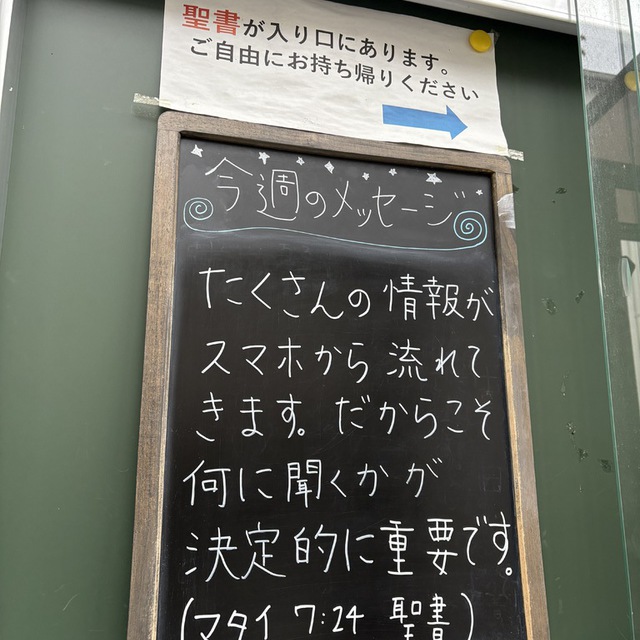 聖書が入り口にあります。
ご自由にお持ち帰りください
今週のメッセージ
たくさんの情報が
スマホから流れて
きます。だからこそ
何に聞くかが
決定的に重要です。
(マタイ 7:24 聖書)